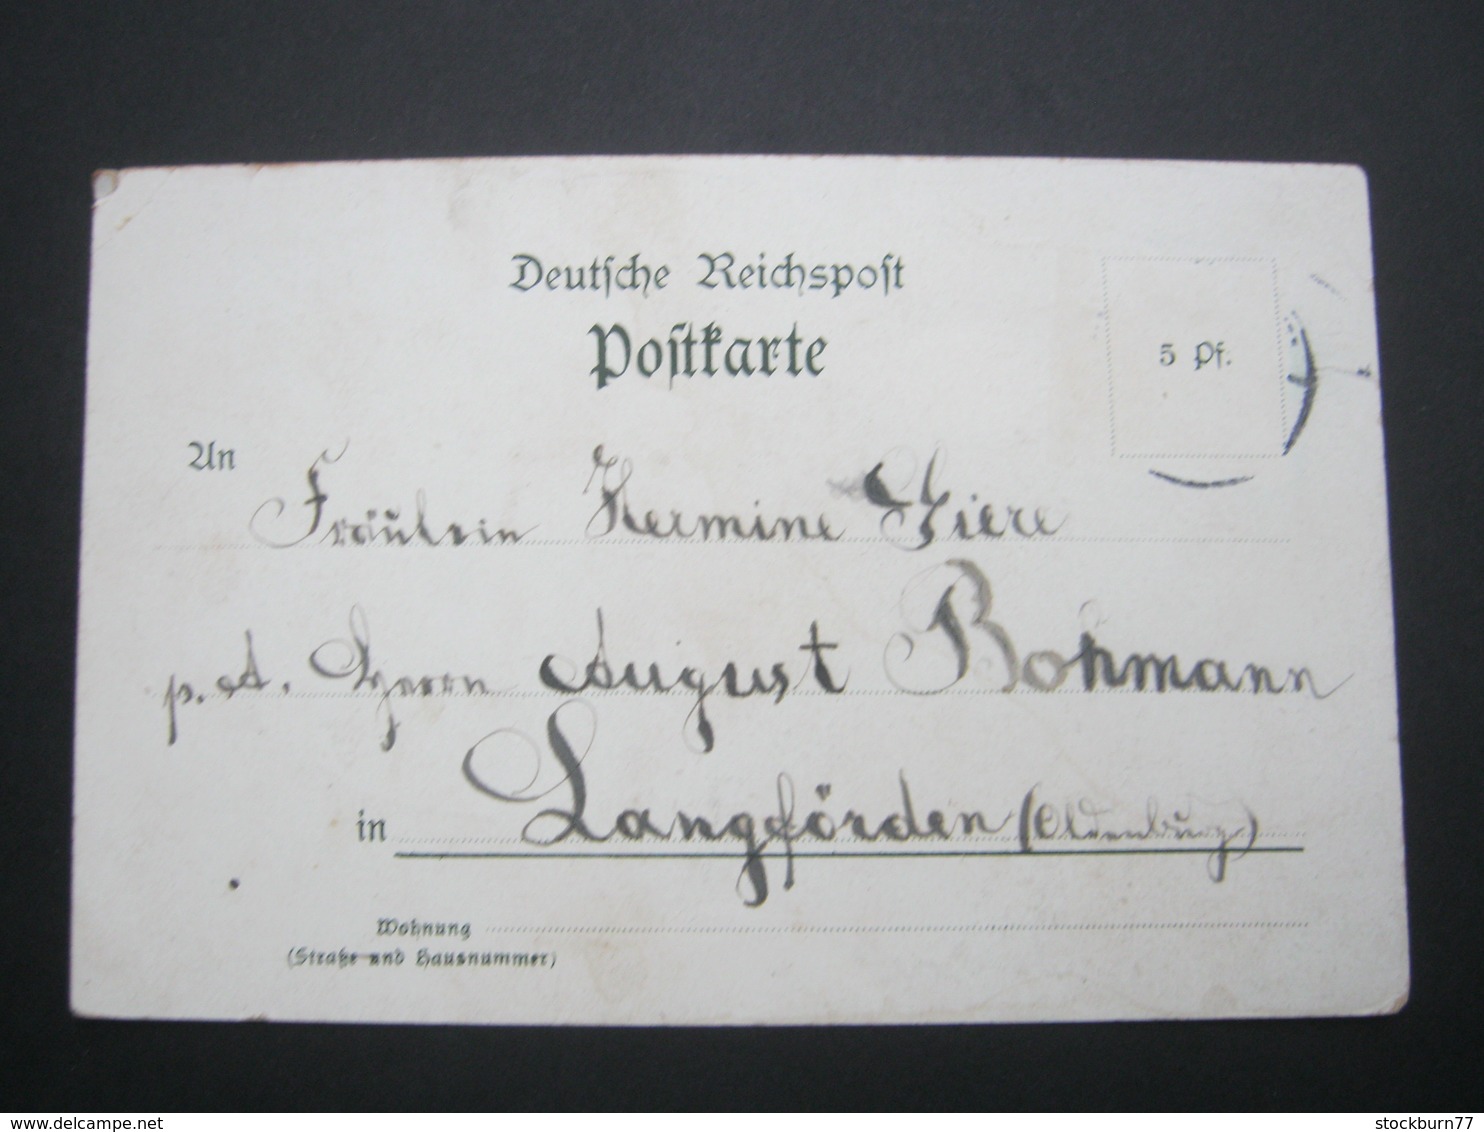 Deutsche Reichspost
Postkarte
5 Pf.
An
Fräulein Hermine
p. A. Herrn August Bohmann
in Langförden (Oldenburg)
Wohnung
(Straße und Hausnummer)
stockburn77